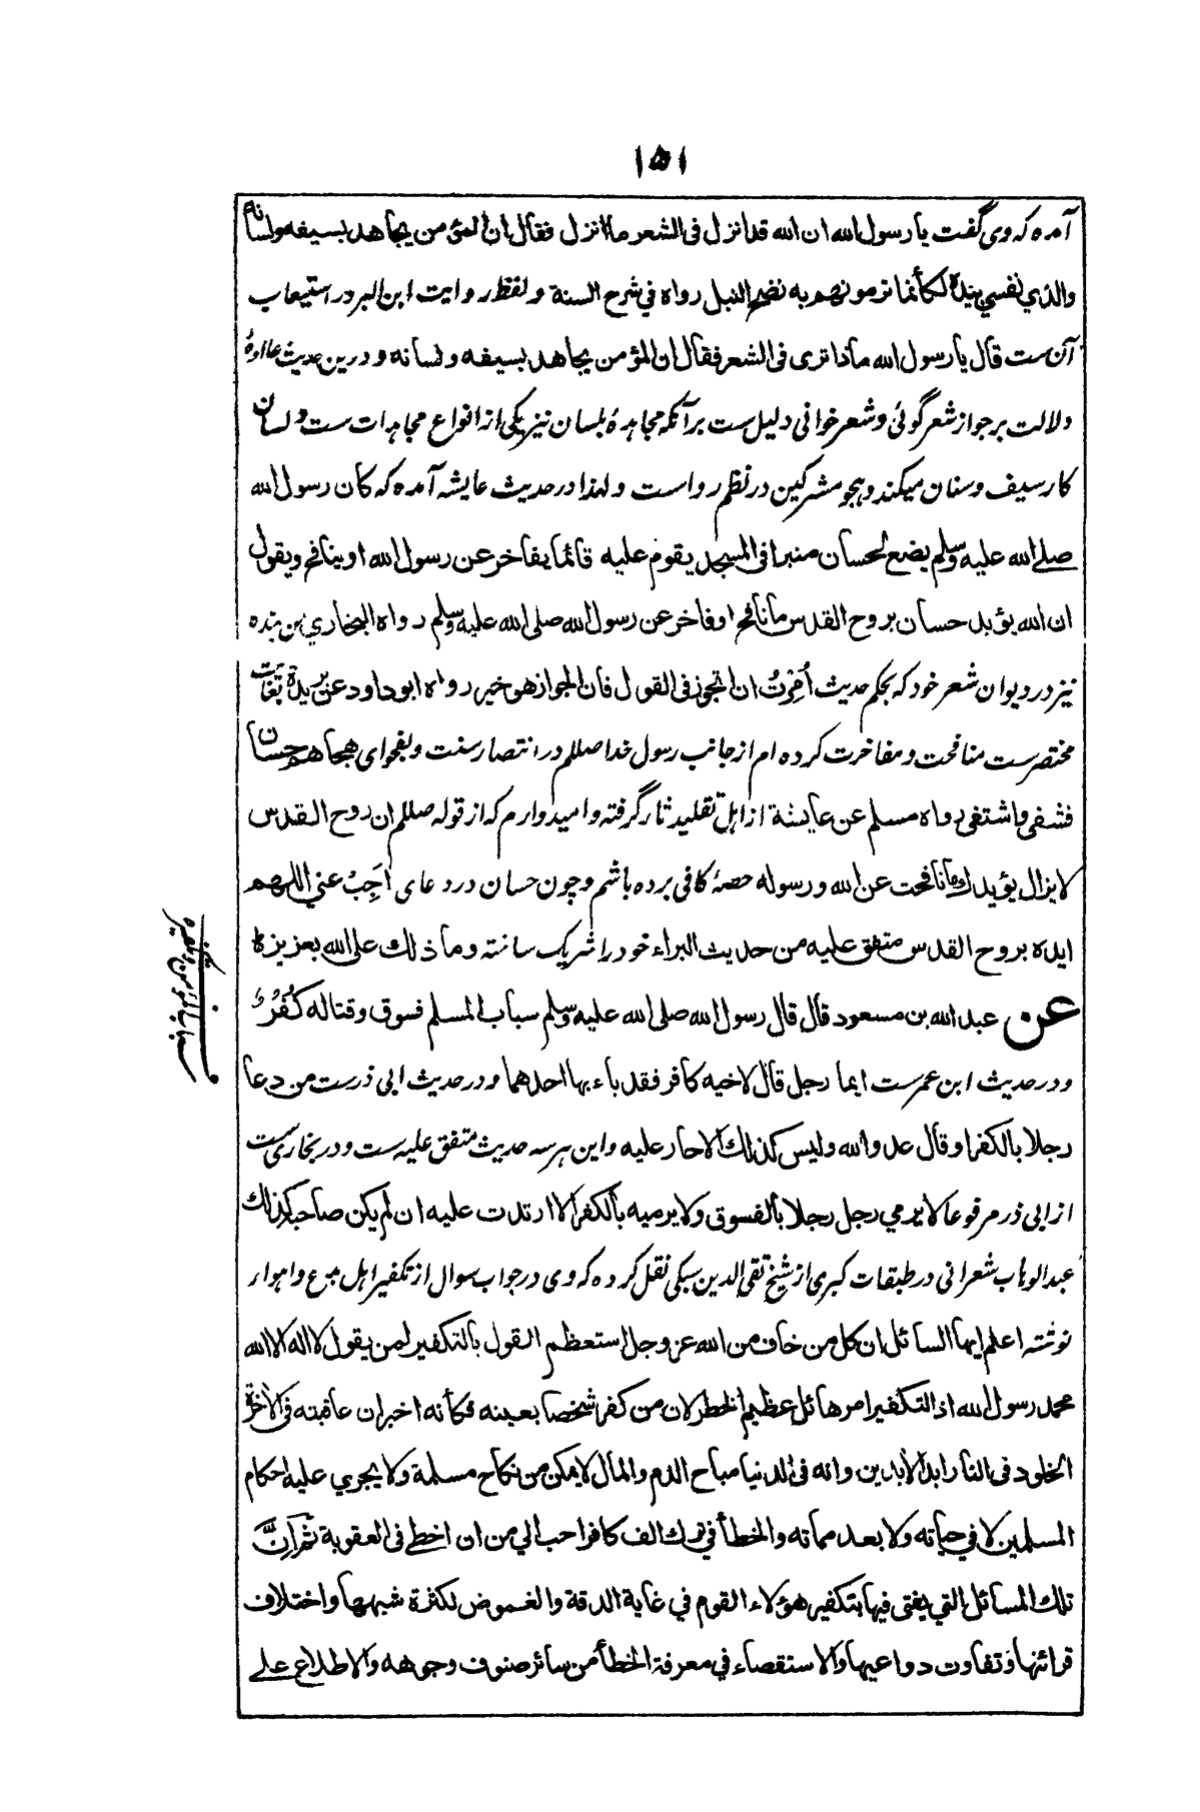 ۱۵۱
آمده که وی گفت یا رسول الله ان الله قد انزل فی الشعر ما انزل فقال ان المؤمن یجاهد بسیفه ولسانه
والذی نفسی بیده لکأنما ترمونهم به نضح النبل رواه فی شرح السنة و لفظ روایت ابن البر در استیعاب
آن ست قال یا رسول الله ماذا تری فی الشعر فقال ان المؤمن یجاهد بسیفه ولسانه و درین حدیث علاوه
دلالت بر جواز شعر گوئی و شعر خوانی دلیل ست بر آنکه مجاهدهٔ بلسان نیز یکی از انواع مجاهدات ست و لسان
کار سیف و سنان میکند و هجو مشرکین در نظم رواست و لهذا در حدیث عایشه آمده که کان رسول الله
صلے الله علیه وسلم یضع لحسان منبرا فی المسجد یقوم علیه قائما یفاخر عن رسول الله او ینافح ویقول
ان الله یؤید حسان بروح القدس ما نافح او فاخر عن رسول الله صلی الله علیه وسلم رواه البخاری من بنده
نیز در دیوان شعر خود که بحکم حدیث اُمِرْتُ ان اتجوز فی القول فان الجواز هو خیر رواه ابو داود عن بریدة بغایت
مختصر ست منافحت و مفاخرت کرده ام از جانب رسول خدا صللم در انتصار سنت و بفحوای هجاهم حسان
فشفی واشتفی رواه مسلم عن عایشة از اهل تقلید ثار گرفته و امیدوارم که از قوله صللم ان روح القدس
لا یزال یؤیدك ما نافحت عن الله ورسوله حصهٔ کافی برده باشم و چون حسان در دعای اَجِبْ عنی اللهم
ایده بروح القدس متفق علیه من حدیث البراء خود را شریک ساخته وما ذلك علی الله بعزیزه
عن عبد الله بن مسعود قال قال رسول الله صلی الله علیه وسلم سباب المسلم فسوق وقتاله كُفْرٌ
و در حدیث ابن عمرست ایما رجل قال لاخیه کافر فقد باء بها احدهما و در حدیث ابی ذرست من دعا
رجلا بالکفر او قال عدو الله ولیس کذلك الا حار علیه و این هر سه حدیث متفق علیه ست و در بخاری ست
از ابی ذر مرفوعا لا یرمی رجل رجلا بالفسوق ولا یرمیه بالکفر الا ارتدت علیه ان لم یکن صاحبه کذلك
عبد الوهاب شعرانی در طبقات کبری از شیخ تقی الدین سبکی نقل کرده که وی در جواب سوال از تکفیر اهل بدع و اهوار
نوشته اعلم ایها السائل ان کل من خاف من الله عز وجل استعظم القول بالتکفیر لمن یقول لا اله الا الله
محمد رسول الله اذ التکفیر امر هائل عظیم الخطر لان من کفر شخصا بعینه فکأنه اخبر ان عاقبته فی الآخرة
الخلود فی النار ابد الآبدین وانه فی الدنیا مباح الدم والمال لا یمکن من نکاح مسلمة ولا یجری علیه احکام
المسلمین لا فی حیاته ولا بعد مماته والخطأ فی ترك الف کافر احب الی من ان اخطئ فی العقوبة ثم اِنَّ
تلك المسائل التی یفتی فیها بتکفیر هؤلاء القوم فی غایة الدقة والغموض لکثرة شبهها واختلاف
قرائنها وتفاوت دواعیها والاستقصاء فی معرفة الخطأ من سائر صنوف وجوهه والاطلاع علے